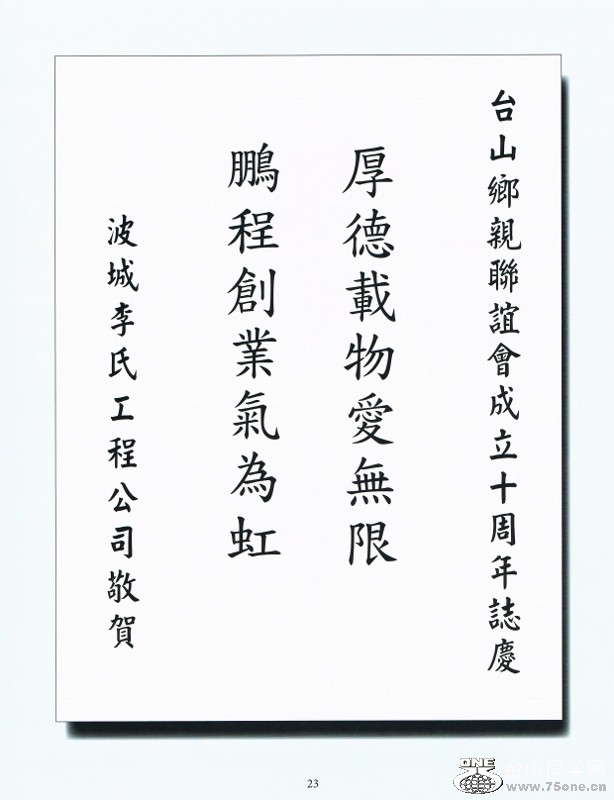 台山鄉親聯誼會成立十周年誌慶
厚德載物愛無限
鵬程創業氣為虹
波城李氏工程公司敬賀
23
ONE
台山同学网
www.75one.cn